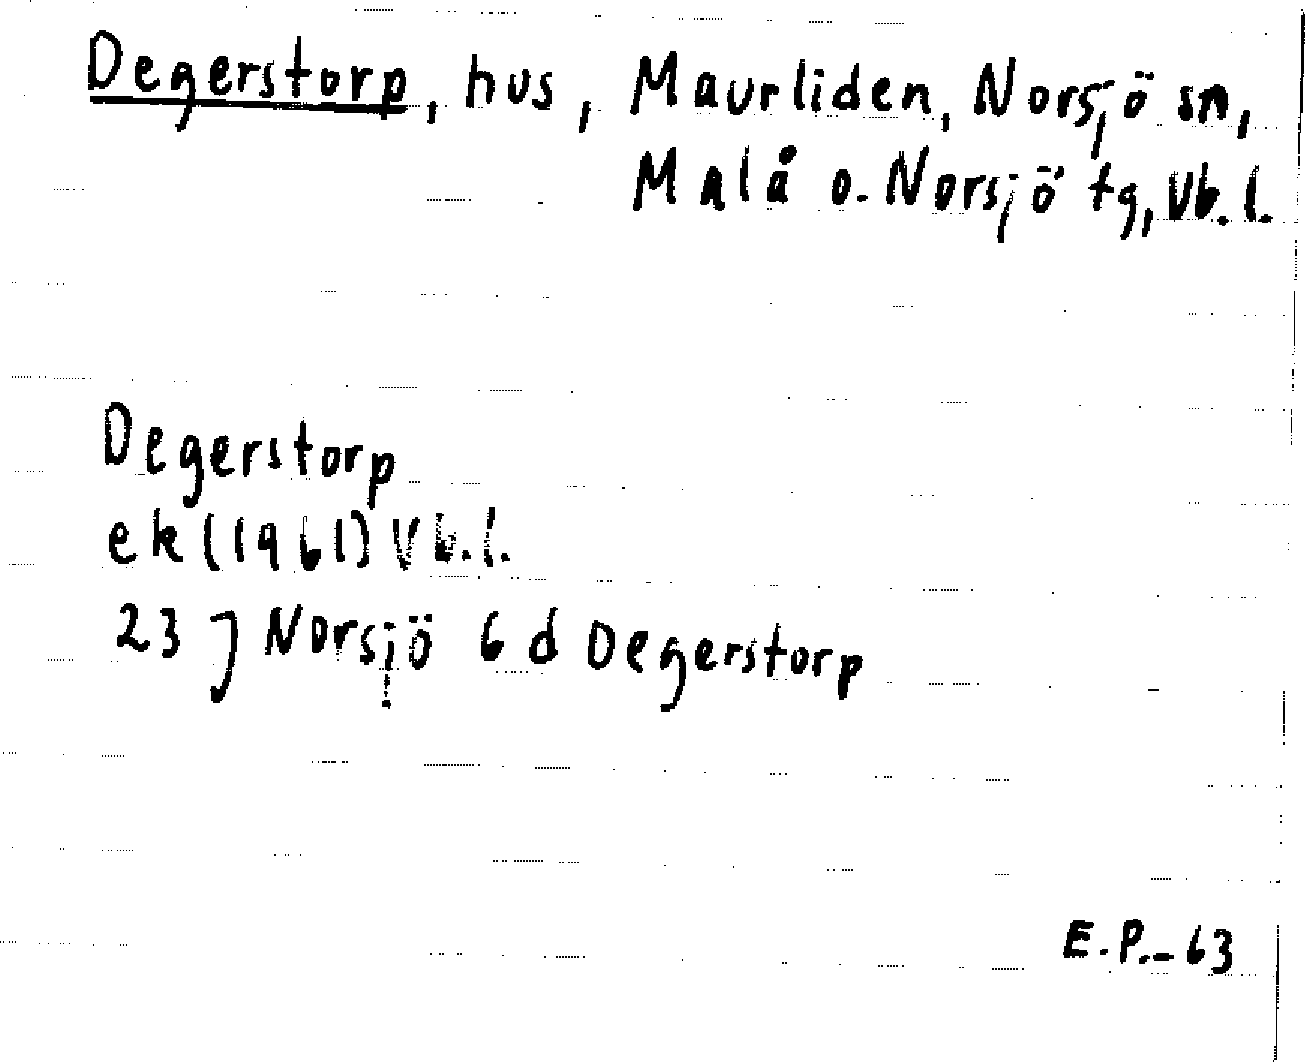 Degerstorp, hus, Maurliden, Norsjö sn,
Malå o. Norsjö tg, Vb. l.
Degerstorp
ek (1961) Vb. l.
23 J Norsjö 6 d Degerstorp
E.P.-63